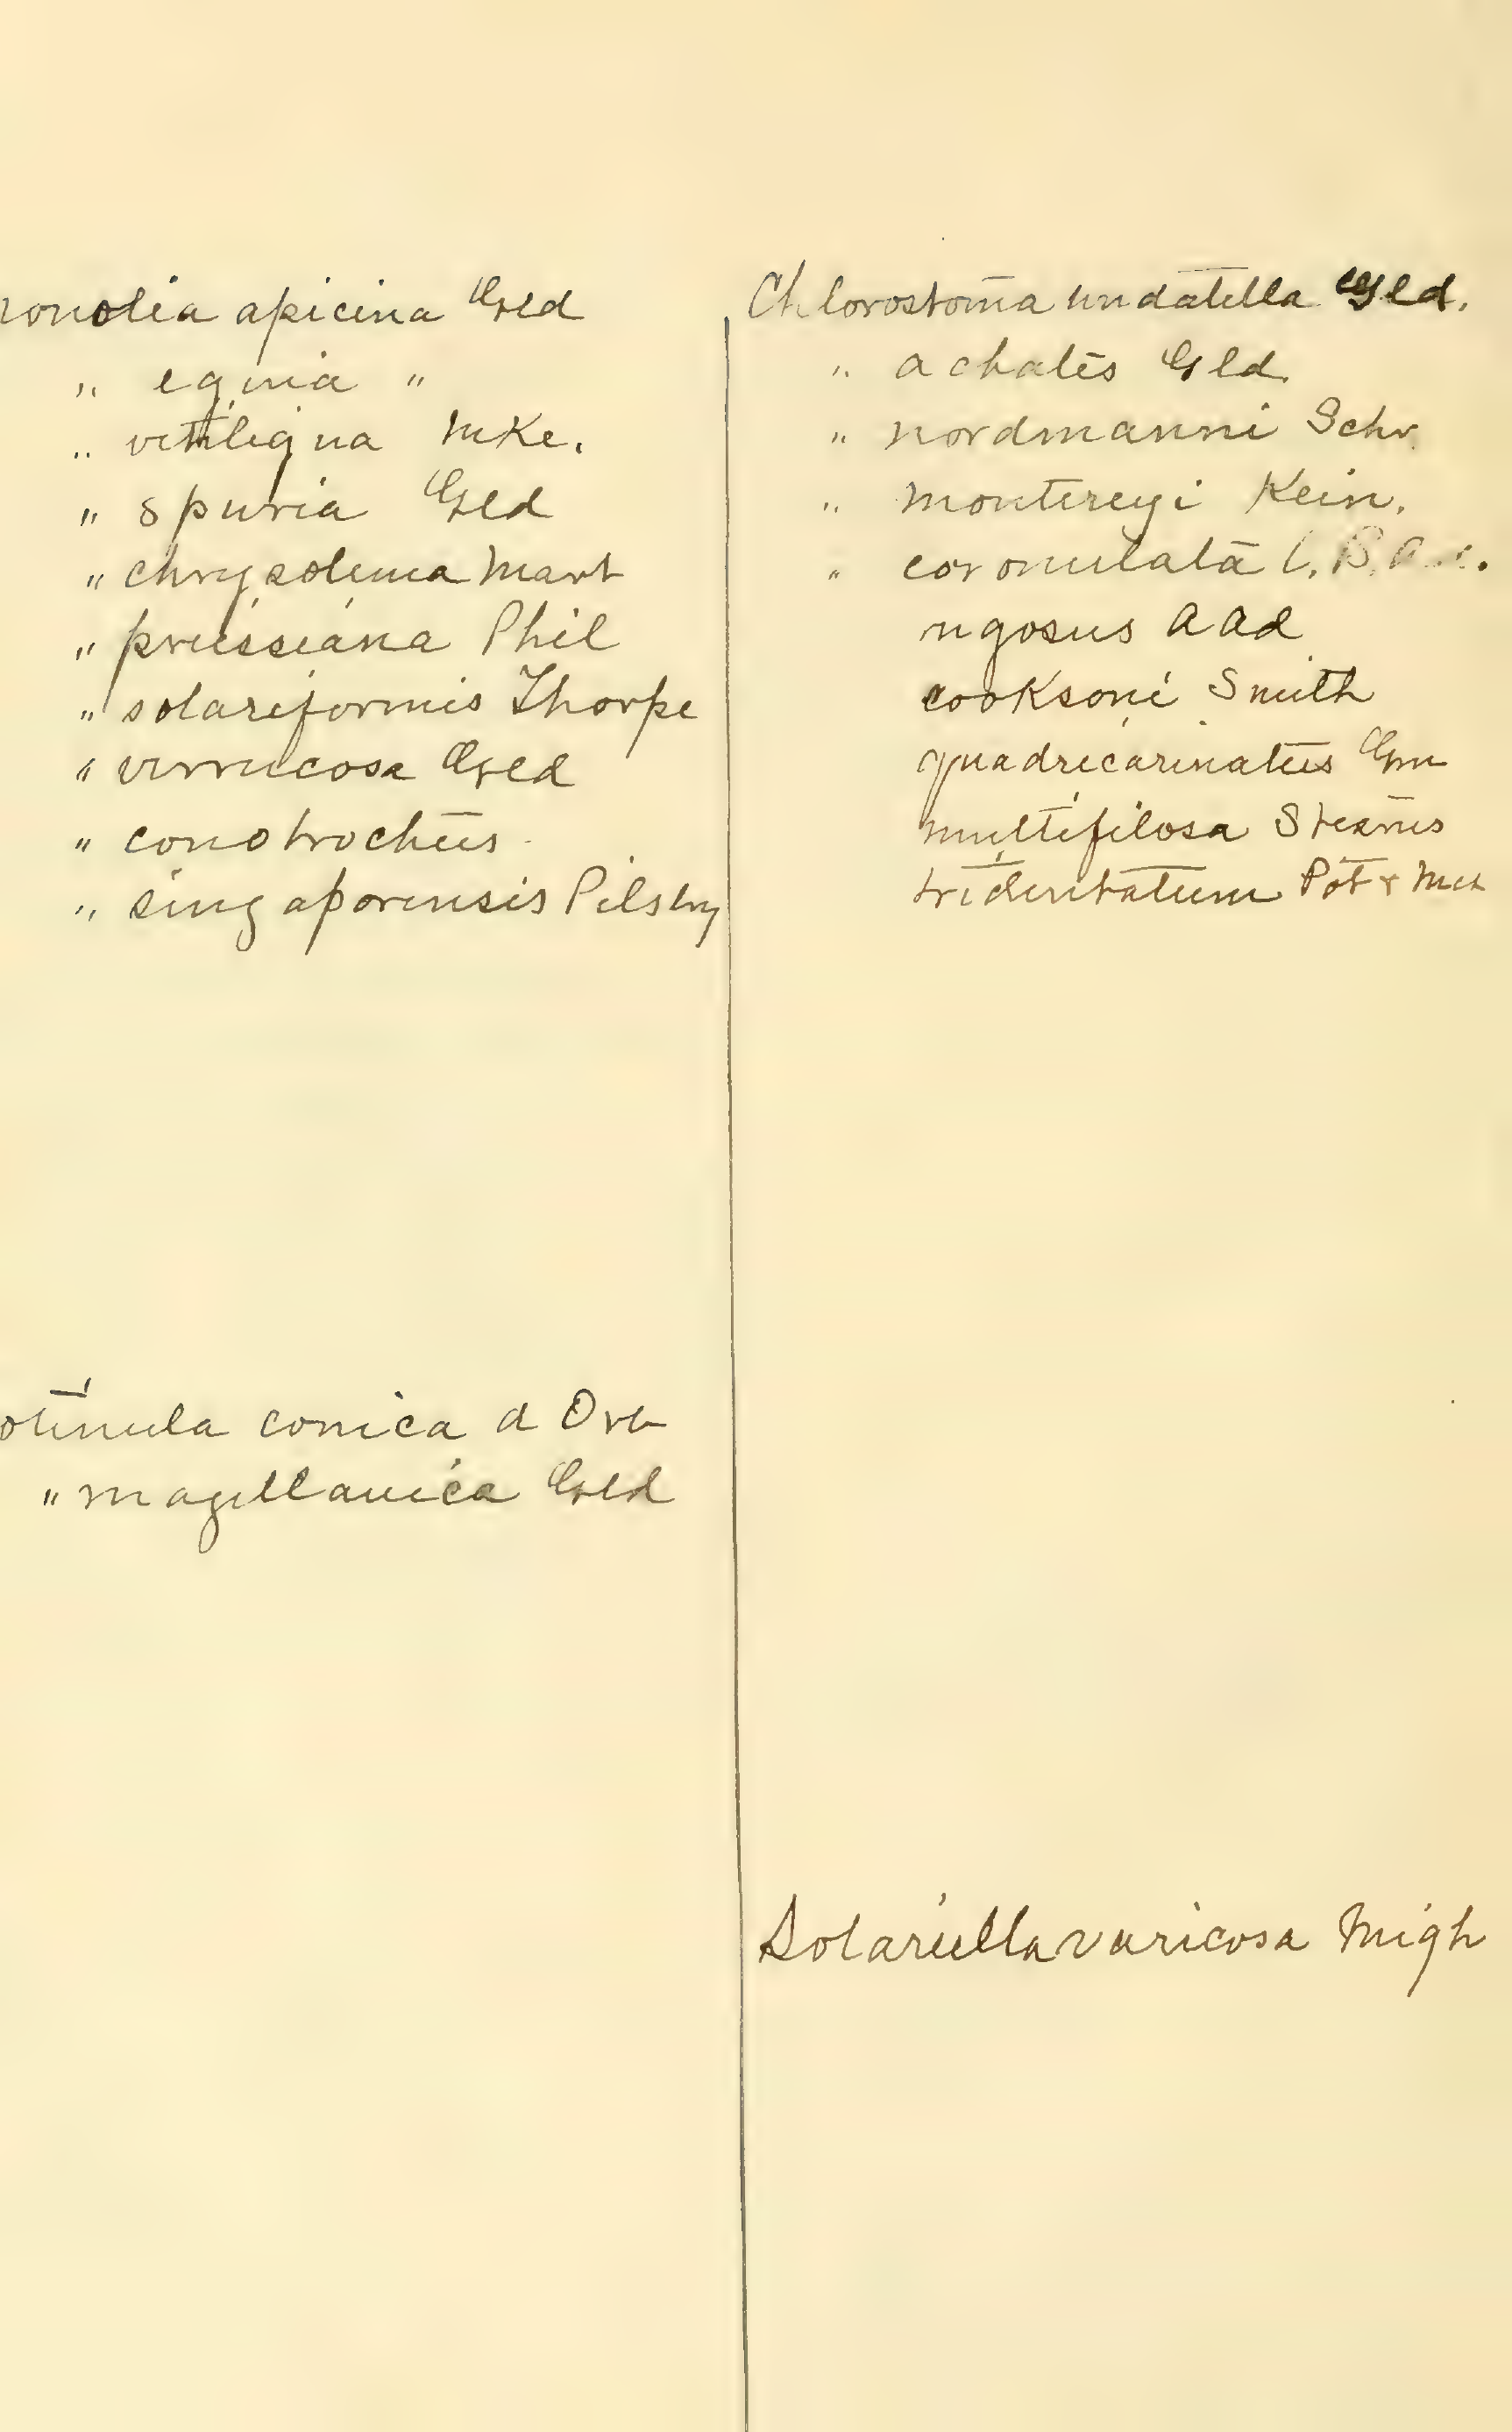 onotia apicina Gld
" egina "
" vitiligina Mke.
" spuria Gld
" chrysolema Mart
" preissiana Phil
" solariformis Thorpe
" verrucosa Gld
" conotrochus
" singaporensis Pilsbry
otinula conica d Orb
" magellanica Gld
Chlorostoma undatella Gld.
" achates Gld.
" nordmanni Schr.
" montereyi Kein.
" coronulata C. B. Ad.
rugosus A Ad
cooksoni Smith
quadricarinatus Gm
multifilosa Stearns
tridentatum Pot & Mch
Solariella varicosa Migh